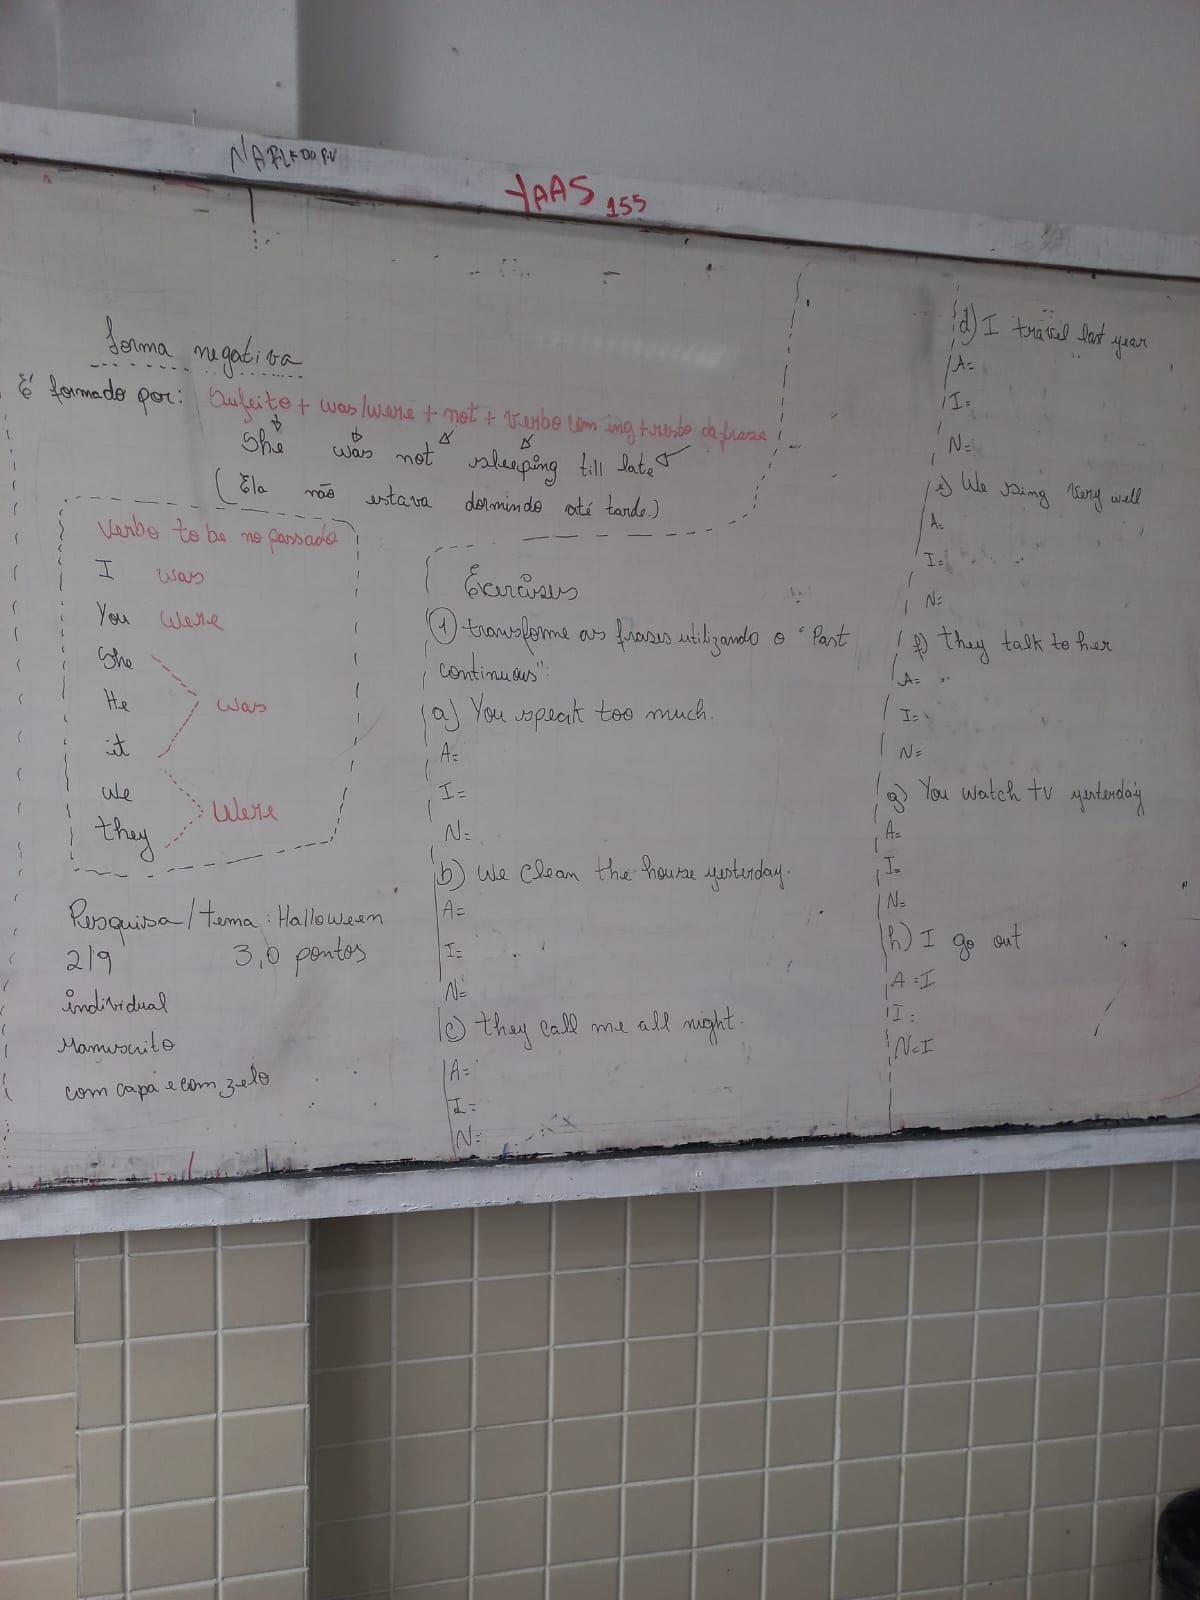 YAAS 155
forma negativa
É formado por: Sufeito + was/were + not + verbo com ing + resto da frase
She was not sleeping till late
(Ela não estava dormindo até tarde.)
Verbo to be no passado
I was
You were
She
He
was
it
we
Were
they
Pesquisa/tema: Halloween
2/9 3,0 pontos
individual
Manuscrito
com capa e com zelo
Exercises
1 transforme as frases utilizando o "Past
continuous":
a) You speak too much.
A=
I=
N=
b) We clean the house yesterday.
A=
I=
N=
c) they call me all night.
A=
I=
N=
d) I travel last year
A=
I=
N=
e) We sing very well
A=
I=
N=
f) they talk to her
A=
I=
N=
g) You watch tv yesterday
A=
I=
N=
h) I go out
A=I
I=
N=I